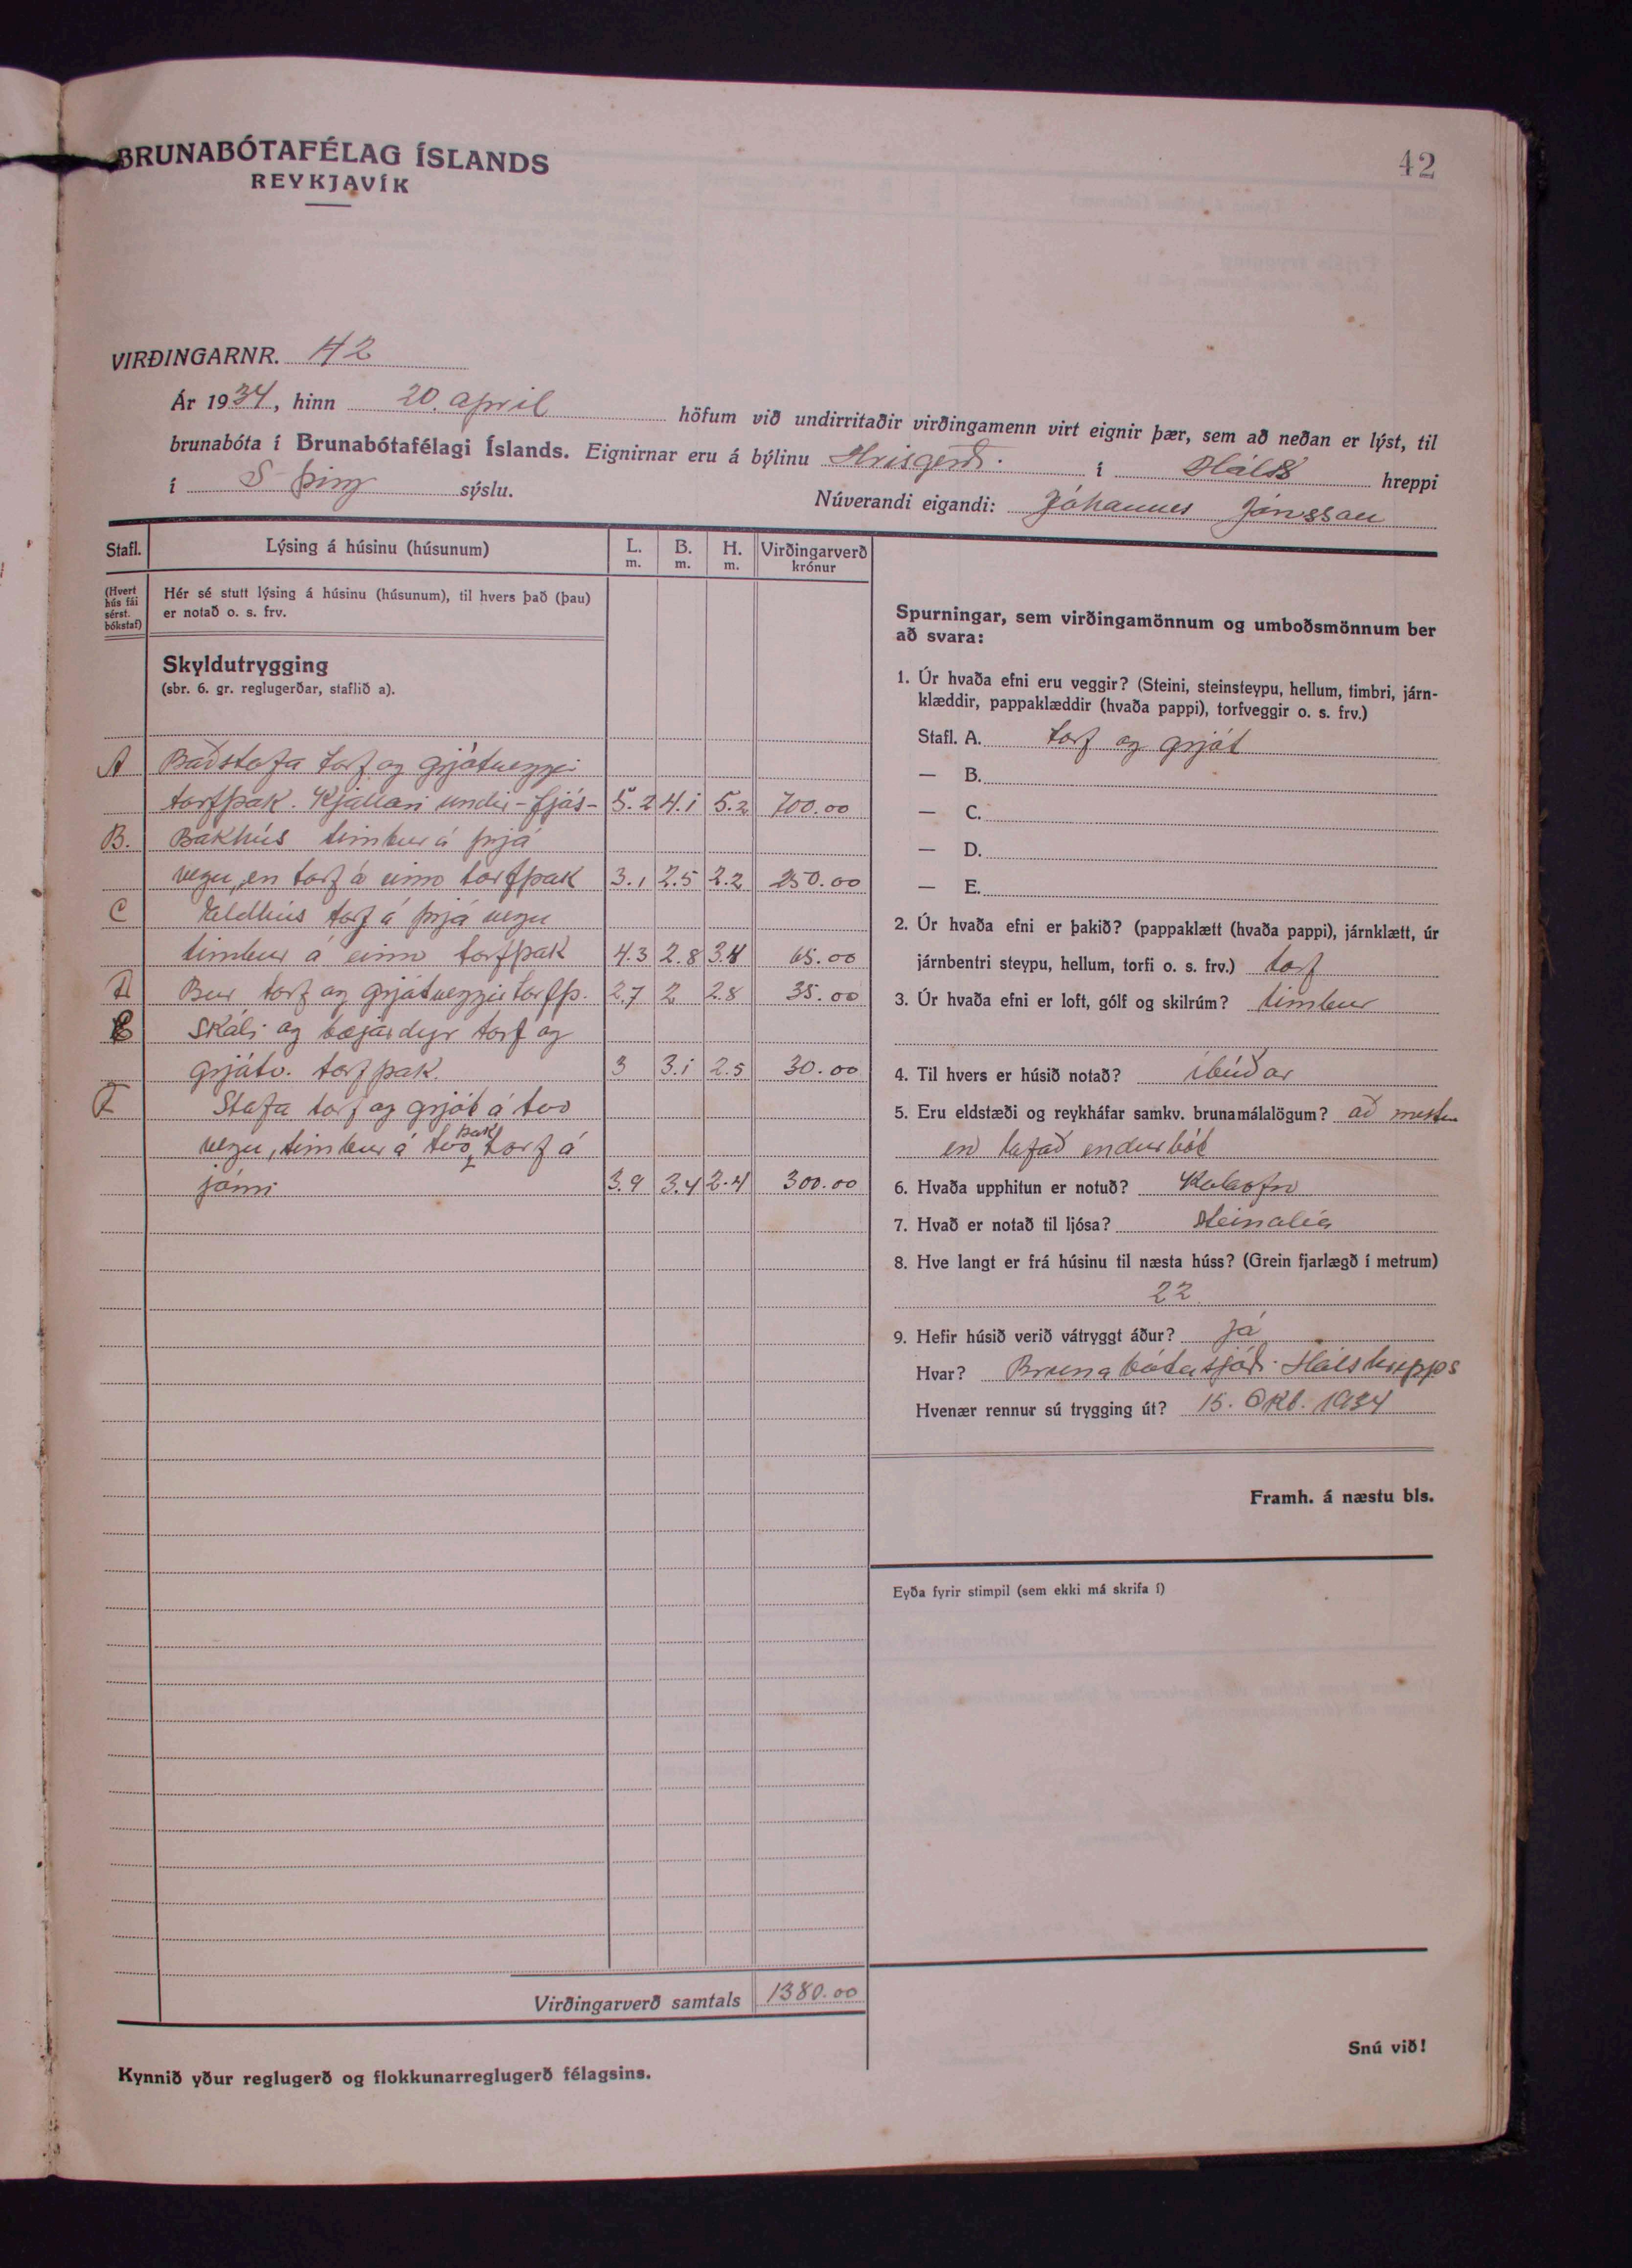 BRUNABÓTAFÉLAG ÍSLANDS
REYKJAVÍK
42
VIRÐINGARNR. 42
Ár 1934, hinn 20. april höfum við undirritaðir virðingamenn virt eignir þær, sem að neðan er lýst, til
brunabóta í Brunabótafélagi Íslands. Eignirnar eru á býlinu Hrisgerði í Háls hreppi
í S-þing sýslu.
Núverandi eigandi: Jóhannes Jónsson
Stafl. Lýsing á húsinu (húsunum) L. m. B. m. H. m. Virðingarverð krónur
(Hvert hús fái sérst. bókstaf)
Hér sé stutt lýsing á húsinu (húsunum), til hvers það (þau)
er notað o. s. frv.
Skyldutrygging
(sbr. 6. gr. reglugerðar, staflið a).
A Baðstofa torf og grjótveggir
torfþak. Kjallari undir - fjós - 5.2 4.1 5.2 700.00
B. Bakhús timbur á þrjá
vegu, en torf á einn torfþak 3.1 2.5 2.2 250.00
C Eldhús torf á þrjá vegu
timbur á einn torfþak 4.3 2.8 3.4 65.00
D Bur torf og grjótveggir torfþ. 2.7 2 2.8 35.00
E Skáli og bæjardyr torf og
grjótv. torfþak. 3 3.1 2.5 30.00
F Stofa torf og grjót á tvo
vegu, timbur á tvo, þak torf á
járni 3.9 3.4 2.4 300.00
Virðingarverð samtals 1380.00
Kynnið yður reglugerð og flokkunarreglugerð félagsins.
Spurningar, sem virðingamönnum og umboðsmönnum ber
að svara:
1. Úr hvaða efni eru veggir? (Steini, steinsteypu, hellum, timbri, járn-
klæddir, pappaklæddir (hvaða pappi), torfveggir o. s. frv.)
Stafl. A. torf og grjót
— B.
— C.
— D.
— E.
2. Úr hvaða efni er þakið? (pappaklætt (hvaða pappi), járnklætt, úr
járnbentri steypu, hellum, torfi o. s. frv.) torf
3. Úr hvaða efni er loft, gólf og skilrúm? timbur
4. Til hvers er húsið notað? íbúðar
5. Eru eldstæði og reykháfar samkv. brunamálalögum? að mestu
en lofað endurbót
6. Hvaða upphitun er notuð? Kolaofn
7. Hvað er notað til ljósa? Steinolía
8. Hve langt er frá húsinu til næsta húss? (Grein fjarlægð í metrum)
22
9. Hefir húsið verið vátryggt áður? já
Hvar? Brunabótasjóði Hálshrepps
Hvenær rennur sú trygging út? 15. Okt. 1934
Framh. á næstu bls.
Eyða fyrir stimpil (sem ekki má skrifa í)
Snú við!